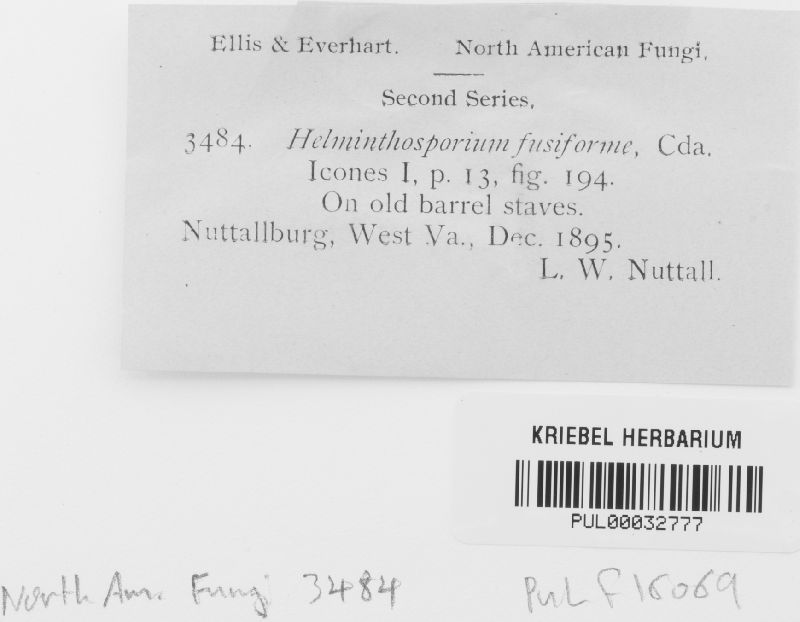 Ellis & Everhart. North American Fungi,
Second Series,
3484. Helminthosporium fusiforme, Cda.
Icones I, p. 13, fig. 194.
On old barrel staves.
Nuttallburg, West Va., Dec. 1895.
L. W. Nuttall.
KRIEBEL HERBARIUM
PUL00032777
North Am. Fungi 3484 PUL F16069